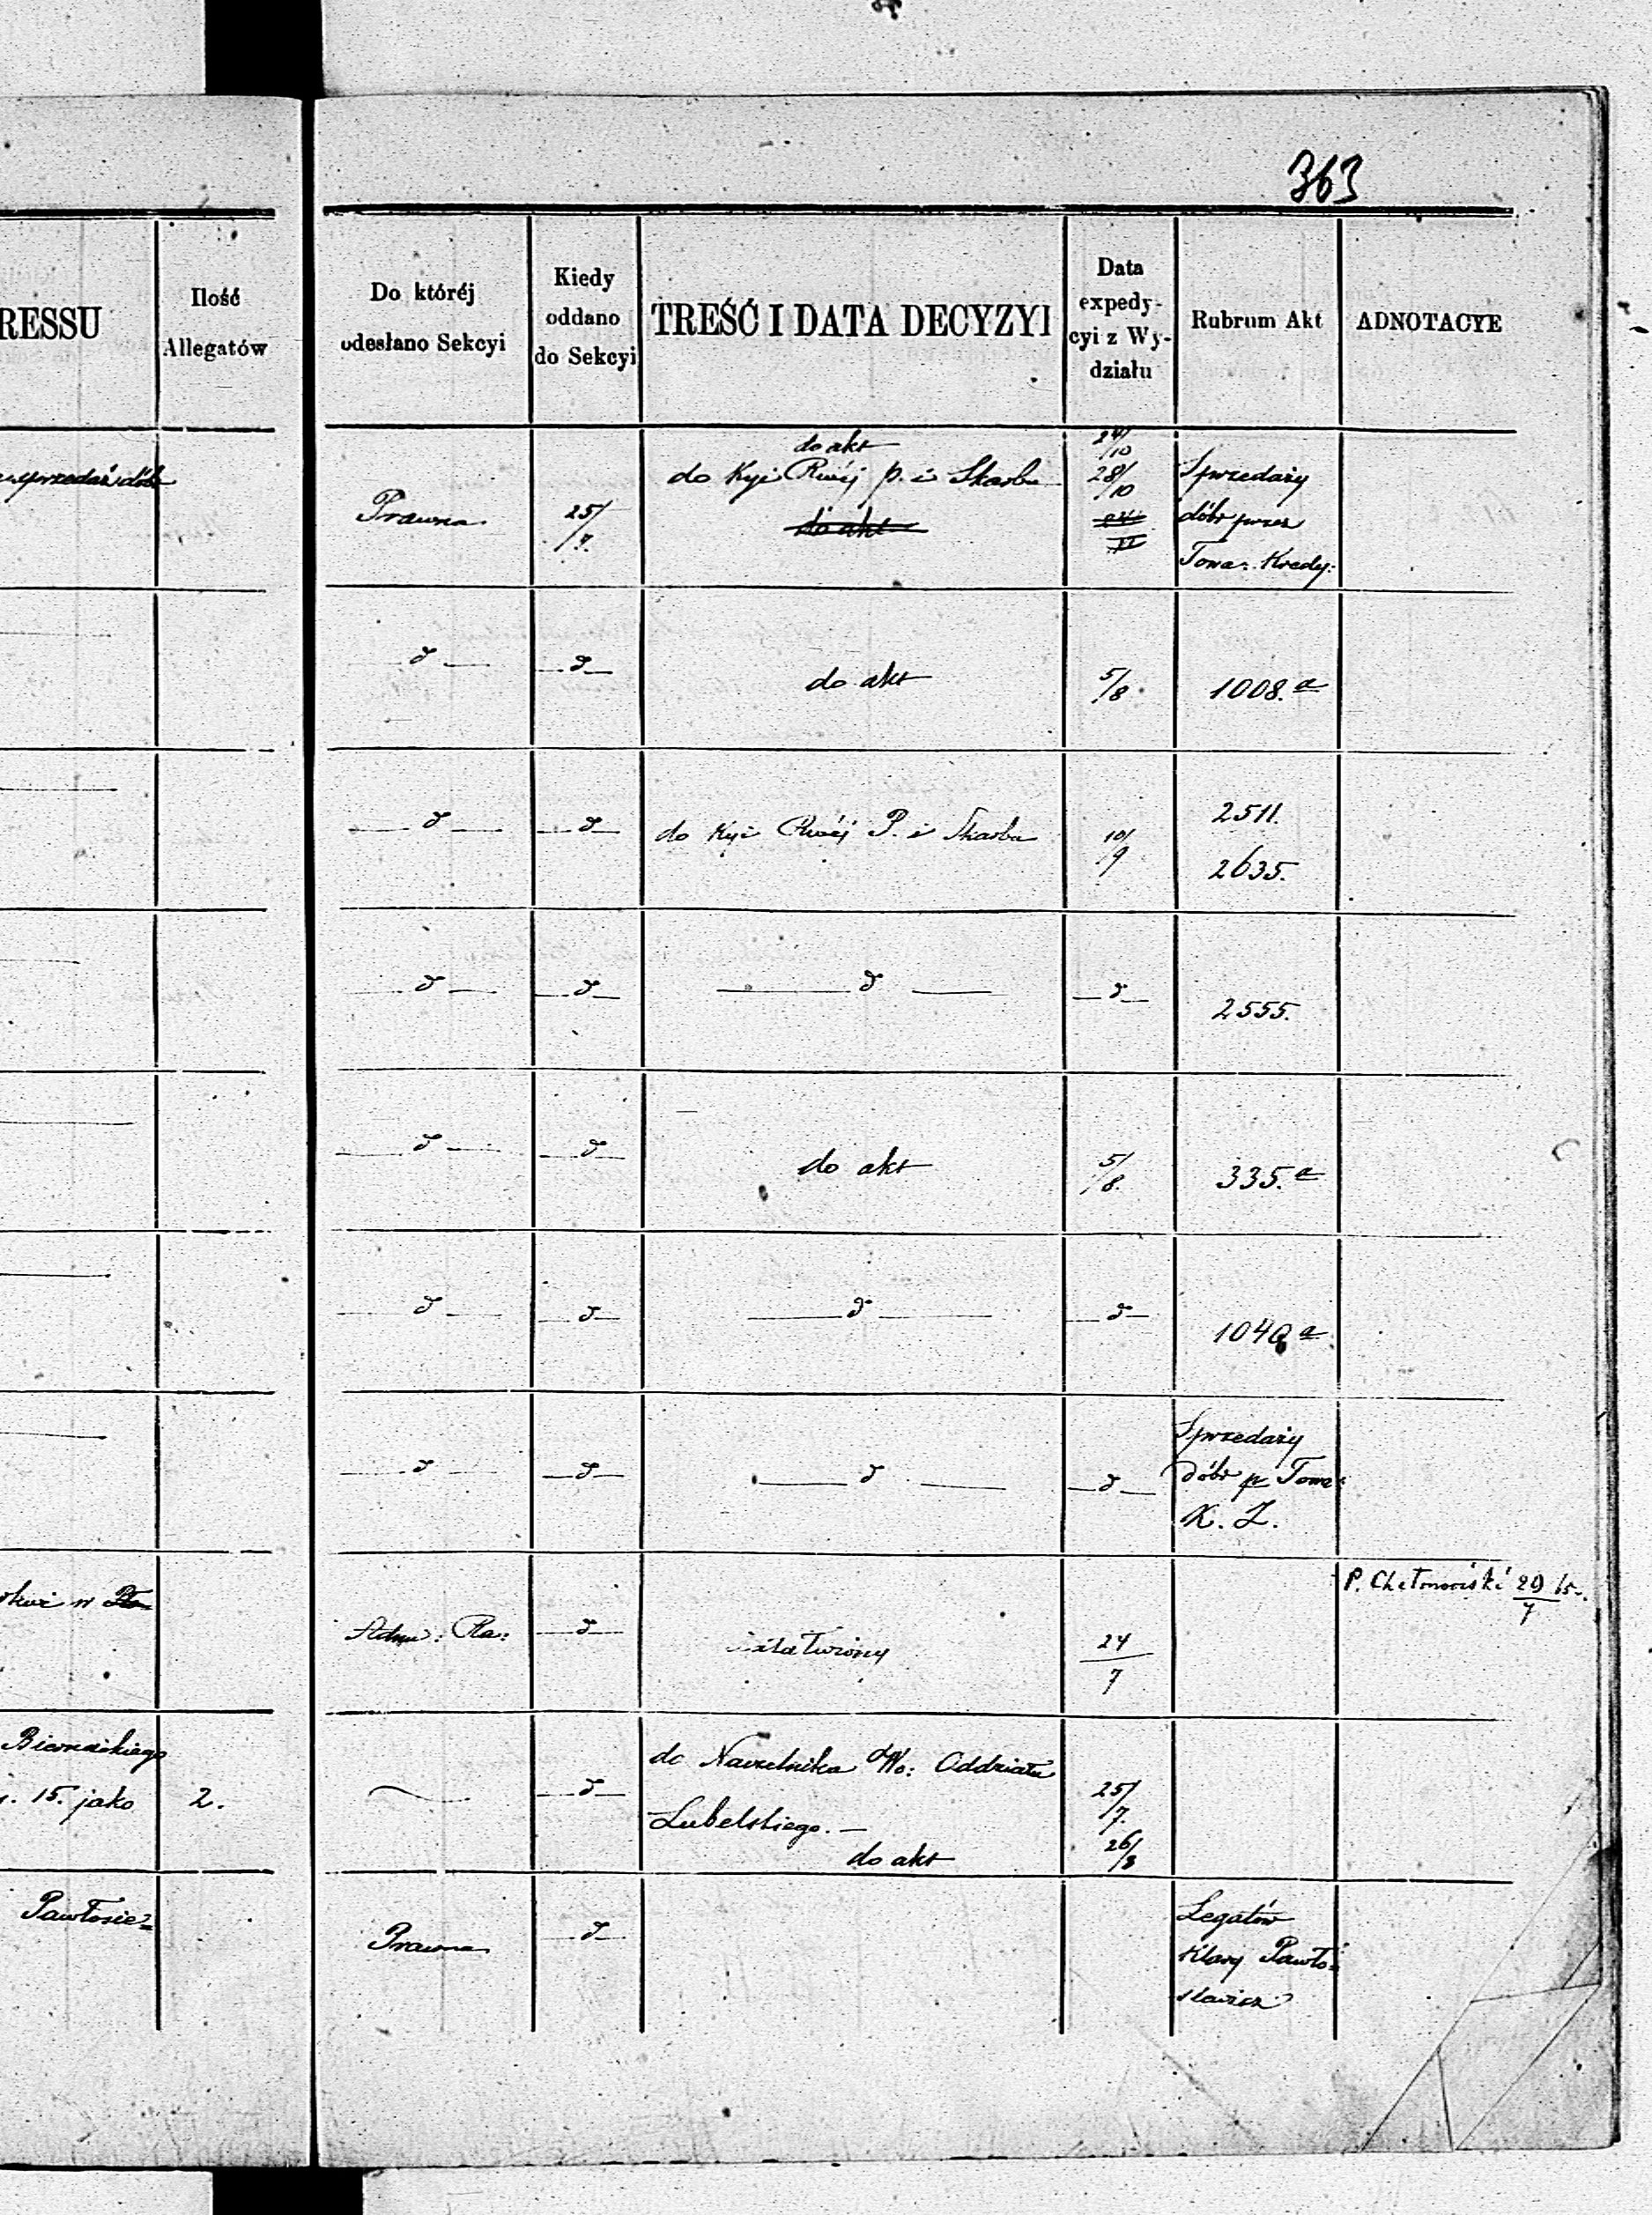 363
RESSU
Ilość
Allegatów
Do któréj
odesłano Sekcyi
Kiedy
oddano
do Sekcyi
TREŚĆ I DATA DECYZYI
Data
expedy-
cyi z Wy-
działu
Rubrum Akt
ADNOTACYE
sprzedaż dóbr
Prawna
25/7.
do akt
do Kyi Rwéj p. i Skarbu
do akt
24/10
28/10
Sprzedaży
dóbr przez
Towa: Kredy:
d d
do akt
5/8.
1008. a
d d
do Kyi Rwéj P. i Skarbu
10/9
2511.
2635.
d d d d
2555.
d d
do akt
5/8.
335. a
d d d d
1040 a
d d d d
Sprzedaży
dóbr p Towa:
K. Z.
Adm: Ra:
d
24/7
P. Chełmoński 29/7 65.
Biernackiego
15. jako
2.
d
do Naczelnika Wo: Oddziału
Lubelskiego. —
do akt
25/7.
26/8
Pawłosie=
Prawna
d
Legatów
Klary Pawło=
siewicz